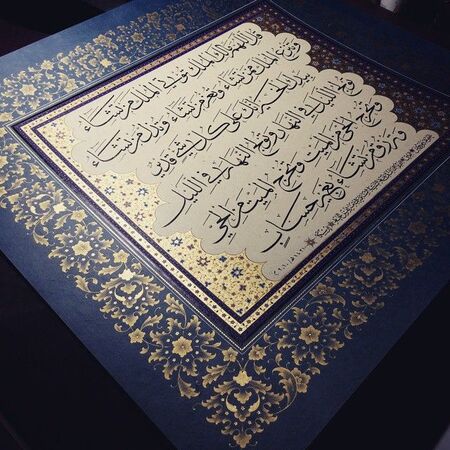 قل اللهم مالك الملك تؤتي الملك من تشاء
وتنزع الملك ممن تشاء وتعز من تشاء وتذل من تشاء
بيدك الخير إنك على كل شيء قدير
تولج الليل في النهار وتولج النهار في الليل
وتخرج الحي من الميت وتخرج الميت من الحي
وترزق من تشاء بغير حساب